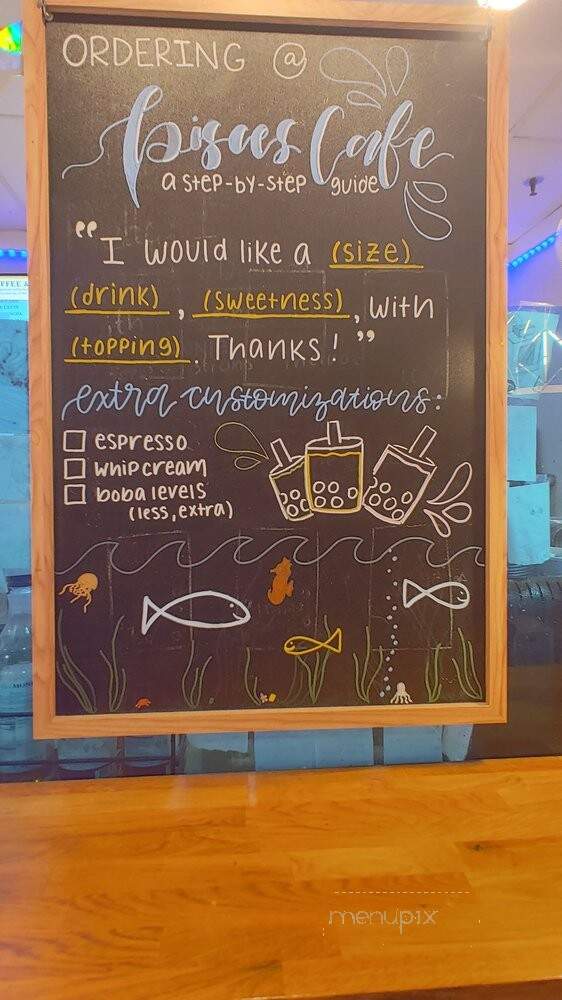 ORDERING @
Pisces Cafe
a STEP-BY-STEP guide
"I would like a (size)
(drink), (sweetness), with
(topping). Thanks!"
extra customizations:
espresso
whip cream
boba levels
(less, extra)
menupix